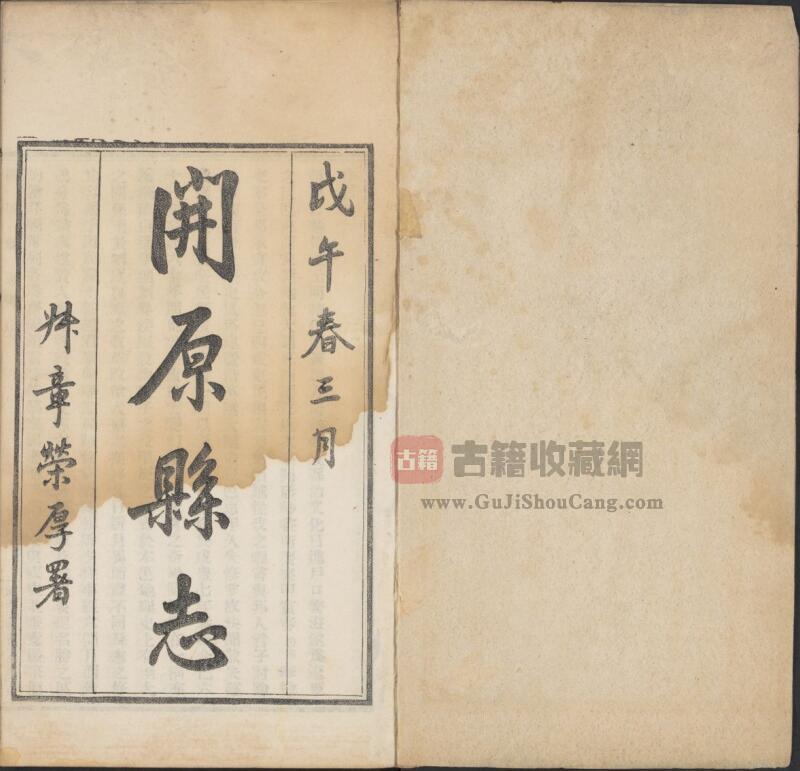 戊午春三月
開原縣志
叔章榮厚署
古籍
古籍收藏網
www.GuJiShouCang.com